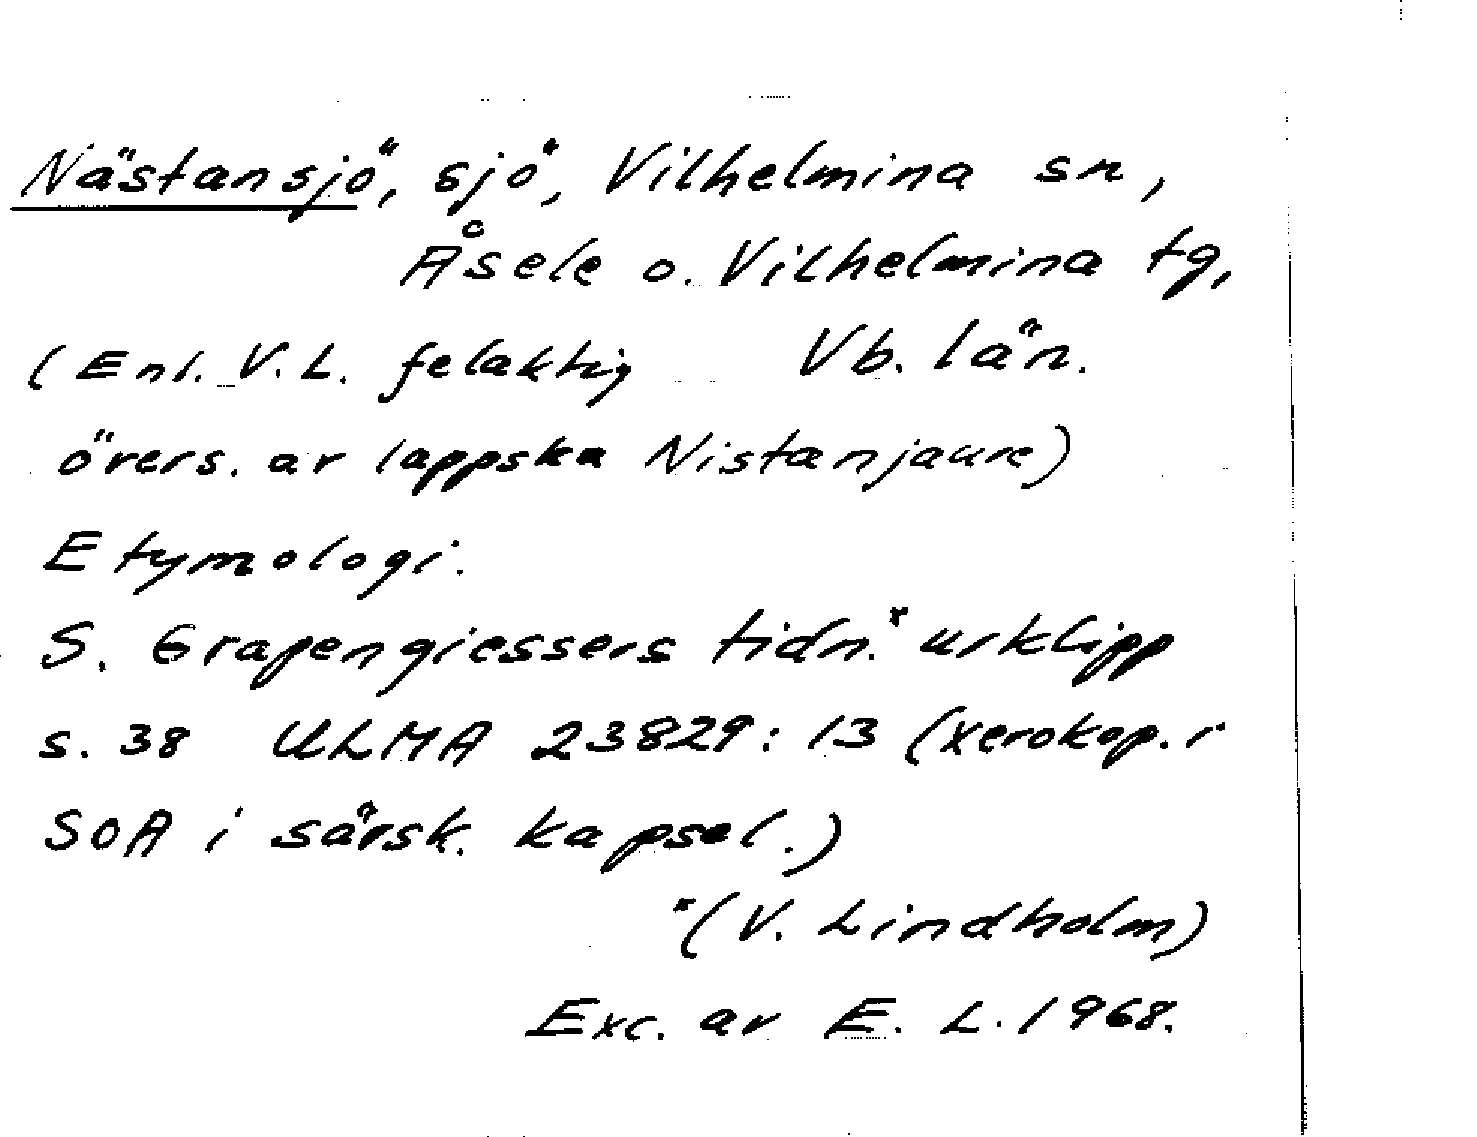 Nästansjö, sjö, Vilhelmina sn,
Åsele o. Vilhelmina tg,
Vb. län.
(Enl. V.L. felaktig
övers. av lappska Nistanjaure)
Etymologi.
S. Grapengiessers tidn.* urklipp
s. 38 ULMA 23829:13 (xerokop. i
SOA i särsk. kapsel.)
*(V. Lindholm)
Exc. av E. L. 1968.